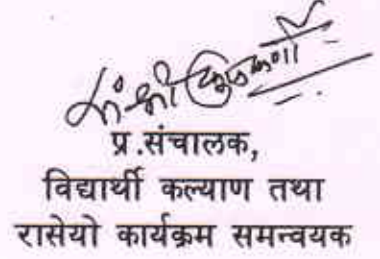 प्र.संचालक,
विद्यार्थी कल्याण तथा
रासेयो कार्यक्रम समन्वयक